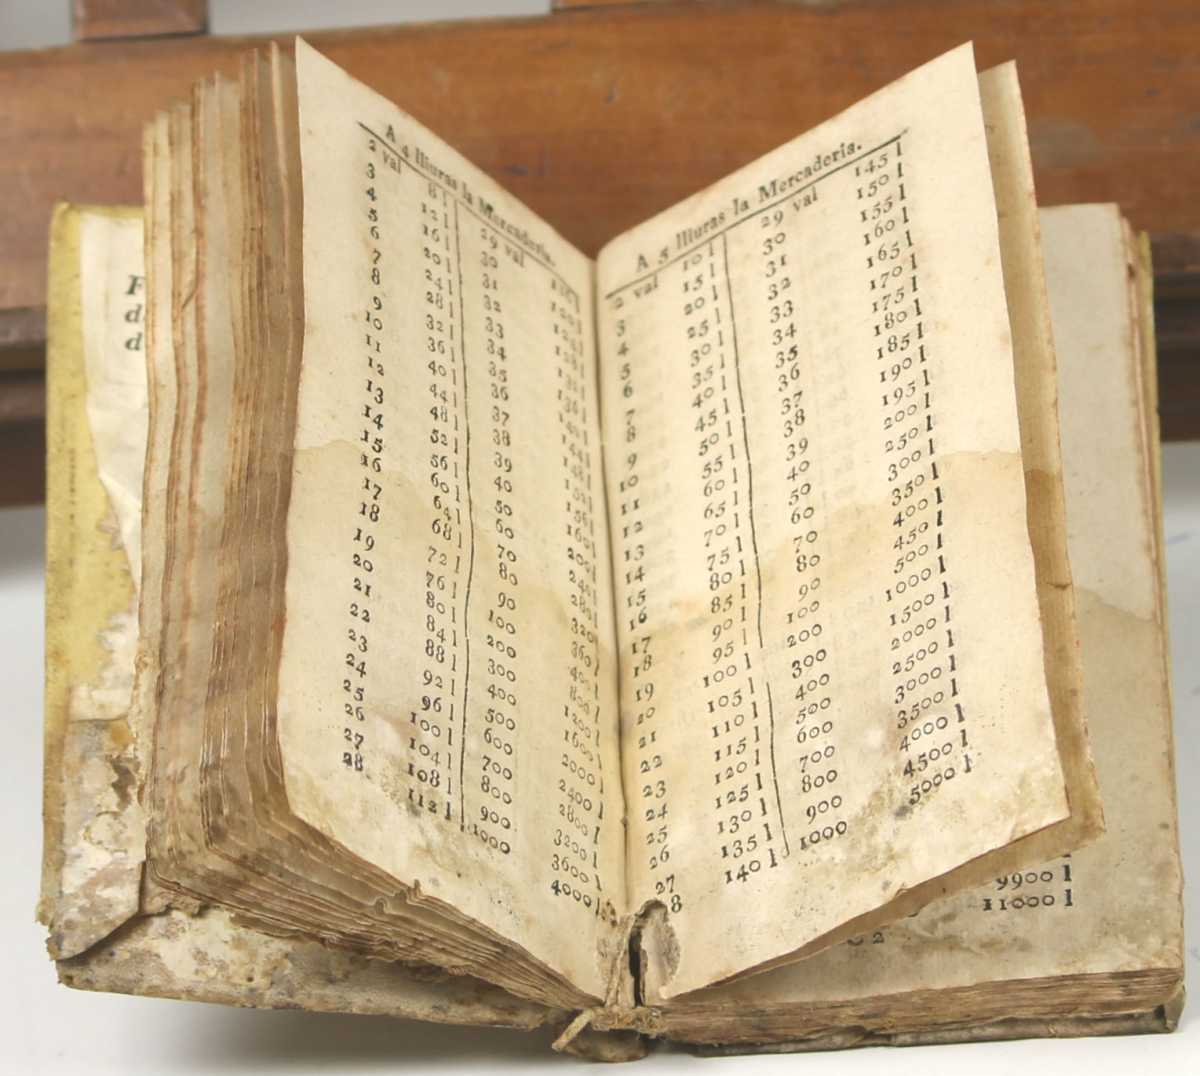 F
d
d
A 4 lliuras la Mercaderia.
2 val 8 l 29 val 116 l
3 12 l 30 120 l
4 16 l 31 124 l
5 20 l 32 128 l
6 24 l 33 132 l
7 28 l 34 136 l
8 32 l 35 140 l
9 36 l 36 144 l
10 40 l 37 148 l
11 44 l 38 152 l
12 48 l 39 156 l
13 52 l 40 160 l
14 56 l 50 200 l
15 60 l 60 240 l
16 64 l 70 280 l
17 68 l 80 320 l
18 72 l 90 360 l
19 76 l 100 400 l
20 80 l 200 800 l
21 84 l 300 1200 l
22 88 l 400 1600 l
23 92 l 500 2000 l
24 96 l 600 2400 l
25 100 l 700 2800 l
26 104 l 800 3200 l
27 108 l 900 3600 l
28 112 l 1000 4000 l
A 5 lliuras la Mercaderia.
2 val 10 l 29 val 145 l
3 15 l 30 150 l
4 20 l 31 155 l
5 25 l 32 160 l
6 30 l 33 165 l
7 35 l 34 170 l
8 40 l 35 175 l
9 45 l 36 180 l
10 50 l 37 185 l
11 55 l 38 190 l
12 60 l 39 195 l
13 65 l 40 200 l
14 70 l 50 250 l
15 75 l 60 300 l
16 80 l 70 350 l
17 85 l 80 400 l
18 90 l 90 450 l
19 95 l 100 500 l
20 100 l 200 1000 l
21 105 l 300 1500 l
22 110 l 400 2000 l
23 115 l 500 2500 l
24 120 l 600 3000 l
25 125 l 700 3500 l
26 130 l 800 4000 l
27 135 l 900 4500 l
8 140 l 1000 5000 l
9900 l
11000 l
C 2